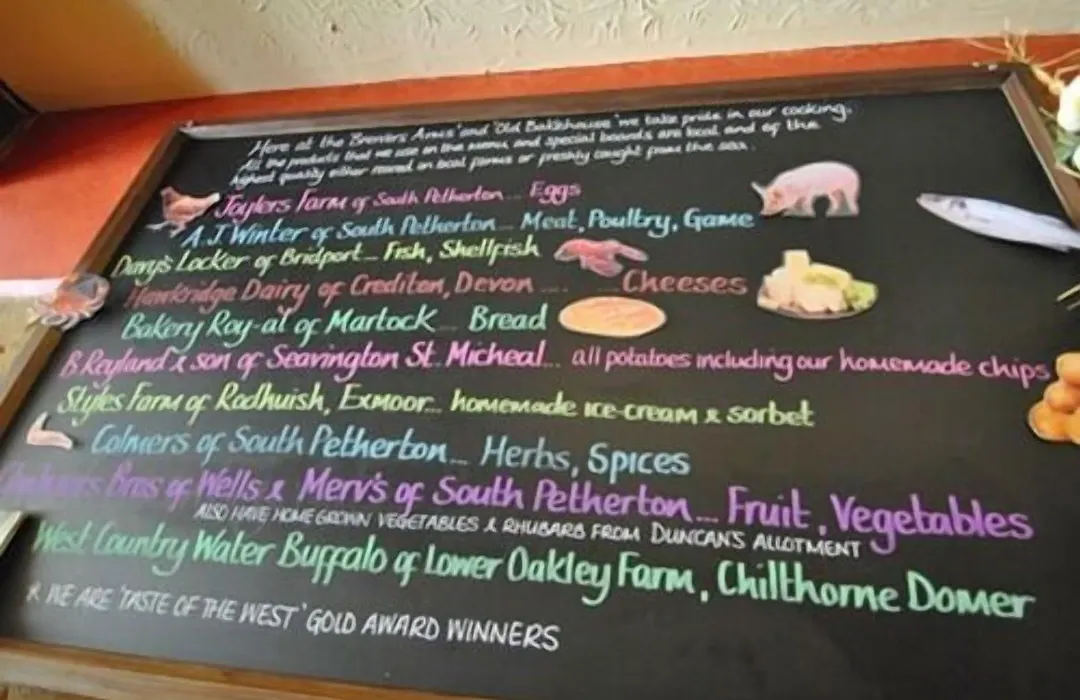 Here at the 'Brewers Arms' and 'Old Bakehouse' we take pride in our cooking.
All the products that we use on the menus and special boards are local and of the
highest quality either reared on local farms or freshly caught from the sea.
Joylers Farm of South Petherton... Eggs
A.J. Winter of South Petherton... Meat, Poultry, Game
Davy's Locker of Bridport... Fish, Shellfish
Hawkridge Dairy of Crediton, Devon .... ....Cheeses
Bakery Roy-al of Martock... Bread
& son of Seavington St. Micheal... all potatoes including our homemade chips
Styles Farm of Rodhuish, Exmoor... homemade ice-cream & sorbet
Colmers of South Petherton... Herbs, Spices
Bros of Wells & Merv's of South Petherton... Fruit, Vegetables
ALSO HAVE HOME GROWN VEGETABLES & RHUBARB FROM DUNCAN'S ALLOTMENT
West Country Water Buffalo of Lower Oakley Farm, Chillthorne Domer
* WE ARE 'TASTE OF THE WEST' GOLD AWARD WINNERS